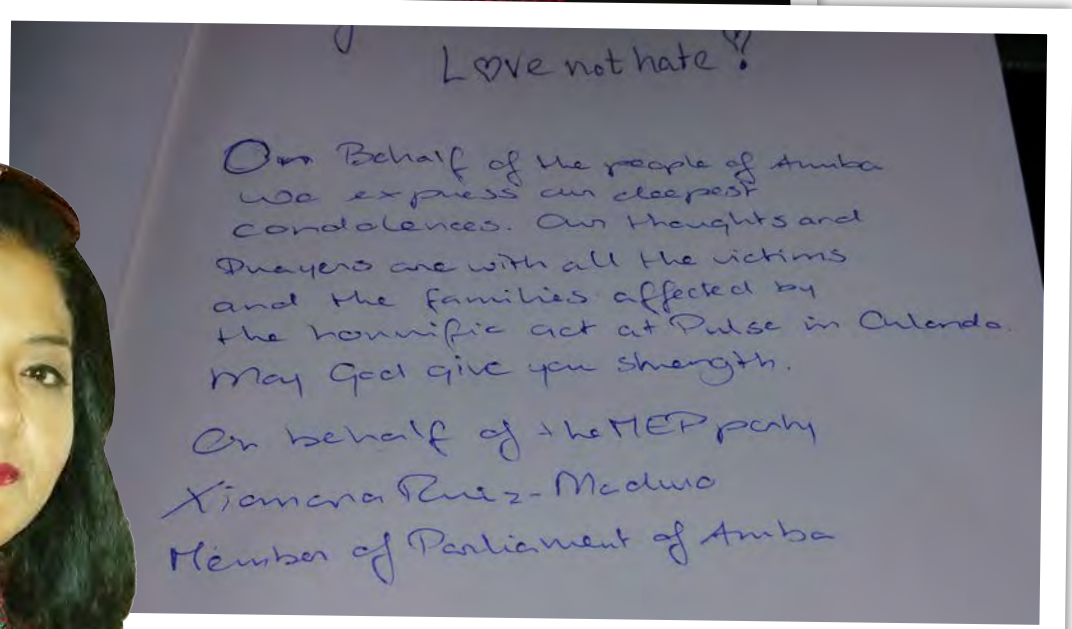 Love not hate!
On Behalf of the people of Aruba
we express our deepest
condolences. Our thoughts and
Prayers are with all the victims
and the families affected by
the horrific act at Pulse in Orlando.
May God give you strength.
On behalf of the MEP party
Xiomara Ruiz-Maduro
Member of Parliament of Aruba